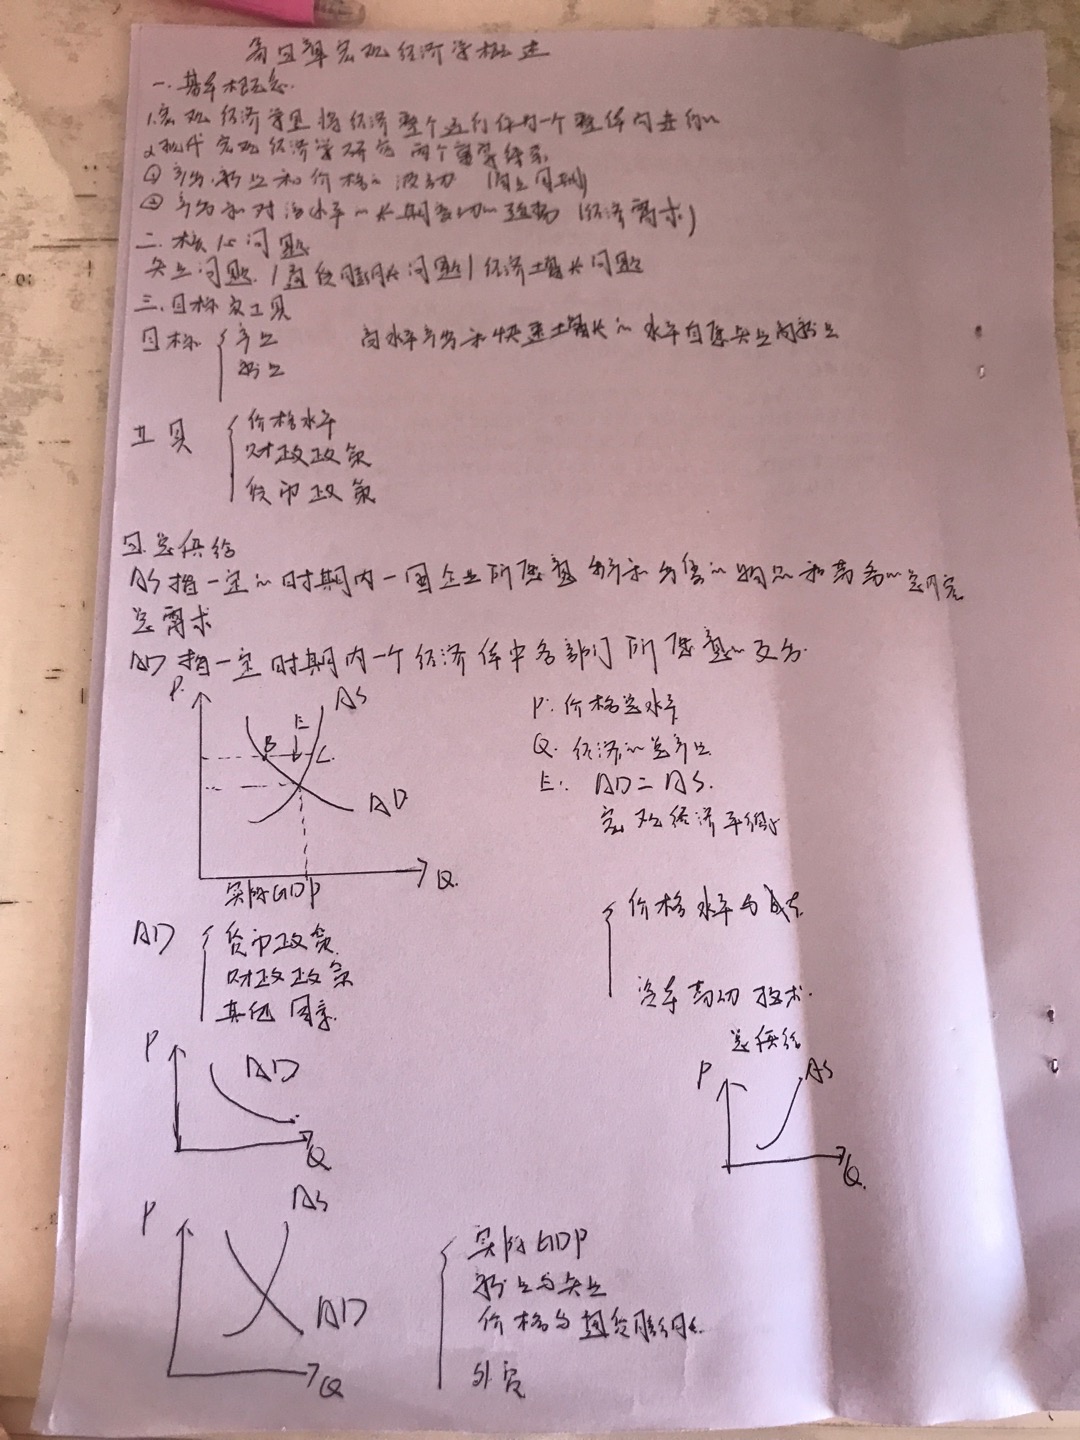 第四章宏观经济学概述
一.基本概念.
1.宏观经济学是将经济整个运行作为一个整体内进行
2.现代宏观经济学研究两个重要
①产出.就业和价格的波动 (商业周期)
②产出和对活水平的长期变动的趋势 (经济需求)
二.核心问题
失业问题./通货膨胀问题/经济增长问题
三.目标及工具
目标 产出 高水平产出和快速增长的水平自愿失业高就业
就业
工具 价格水平
财政政策
货币政策
四.总供给
AS 指一定的时期内一国企业所愿意 和出售的物品和劳务的总
总需求
AD 指一定时期内一个经济体中各部门所愿意的支出.
P. AS
E
B C.
AD
Q.
实际GDP
P: 价格总水平
Q. 经济的总产出
E: AD=AS.
宏观经济平衡
AD 货币政策
财政政策
其他因素.
价格水平与成本
资本劳动 技术.
总供给
P AD Q
P AS Q.
P AS AD Q
实际GDP
就业与失业
价格与通货膨胀
外贸